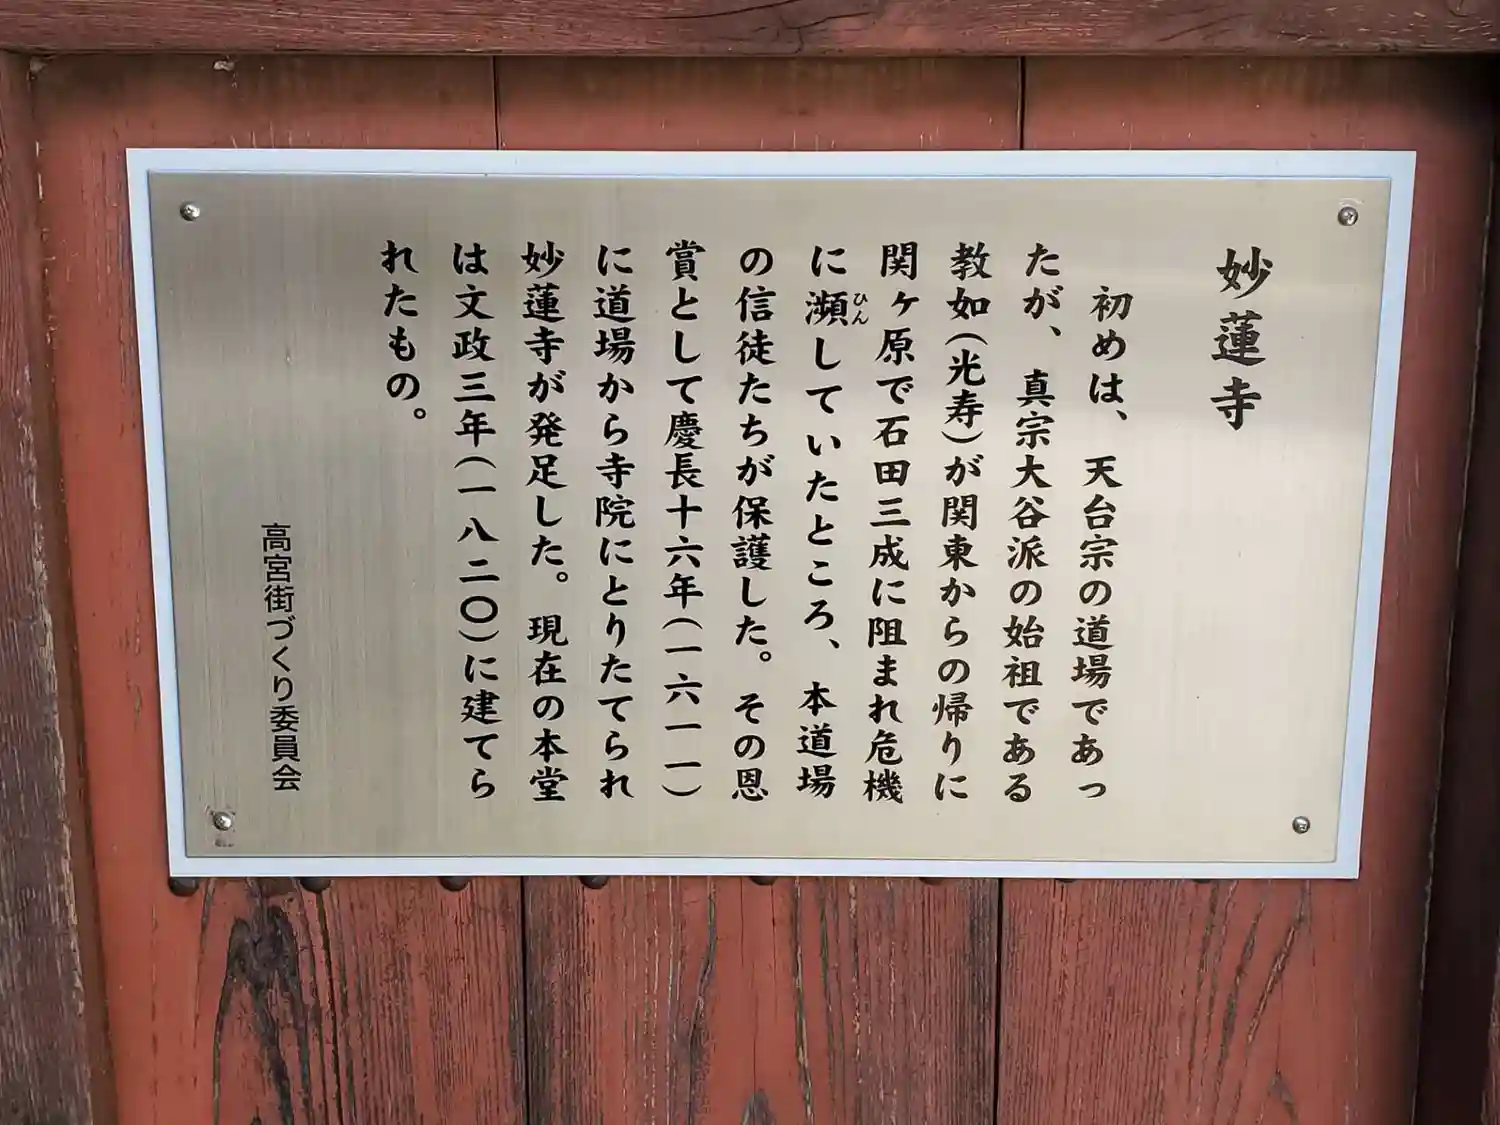 妙蓮寺
初めは、天台宗の道場であっ
たが、真宗大谷派の始祖である
教如(光寿)が関東からの帰りに
関ヶ原で石田三成に阻まれ危機
に瀕ひんしていたところ、本道場
の信徒たちが保護した。その恩
賞として慶長十六年(一六一一)
に道場から寺院にとりたてられ
妙蓮寺が発足した。現在の本堂
は文政三年(一八二〇)に建てら
れたもの。
高宮街づくり委員会